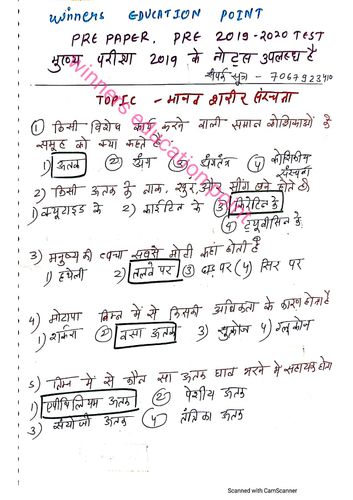 WINNERS EDUCATION POINT
PRE PAPER, PRE 2019-2020 TEST
मुख्य परीक्षा 2019 के नोट्स उपलब्ध हैं
संपर्क सूत्र - 7067923410
TOPIC - मानव शरीर संरचना
① किसी विशेष कार्य करने वाली समान कोशिकाओं के
समूह को क्या कहते हैं
1) ऊतक ② अंग ③ अंगतंत्र ④ कोशिकीय
संरचना
2) किसी ऊतक के नाक, खुर, और सींग बने होते हैं
1) क्यूटाइड के 2) काईटिन के ③ किरेटिन के
④ ट्यूबीसिन के
3) मनुष्य की त्वचा सबसे मोटी कहां होती है
1) हथेली 2) तलवे पर ③ गाल पर (4) सिर पर
4) मोटापा निम्न में से किसकी अधिकता के कारण होता है
1) शर्करा ② वसा ऊतक 3) सुक्रोज 4) ग्लूकोज
5) निम्न में से कौन सा ऊतक घाव भरने में सहायक होगा
1) एपीथिलियम ऊतक ② पेशीय ऊतक
3) संयोजी ऊतक ④ तंत्रिका ऊतक
winners education point
Scanned with CamScanner